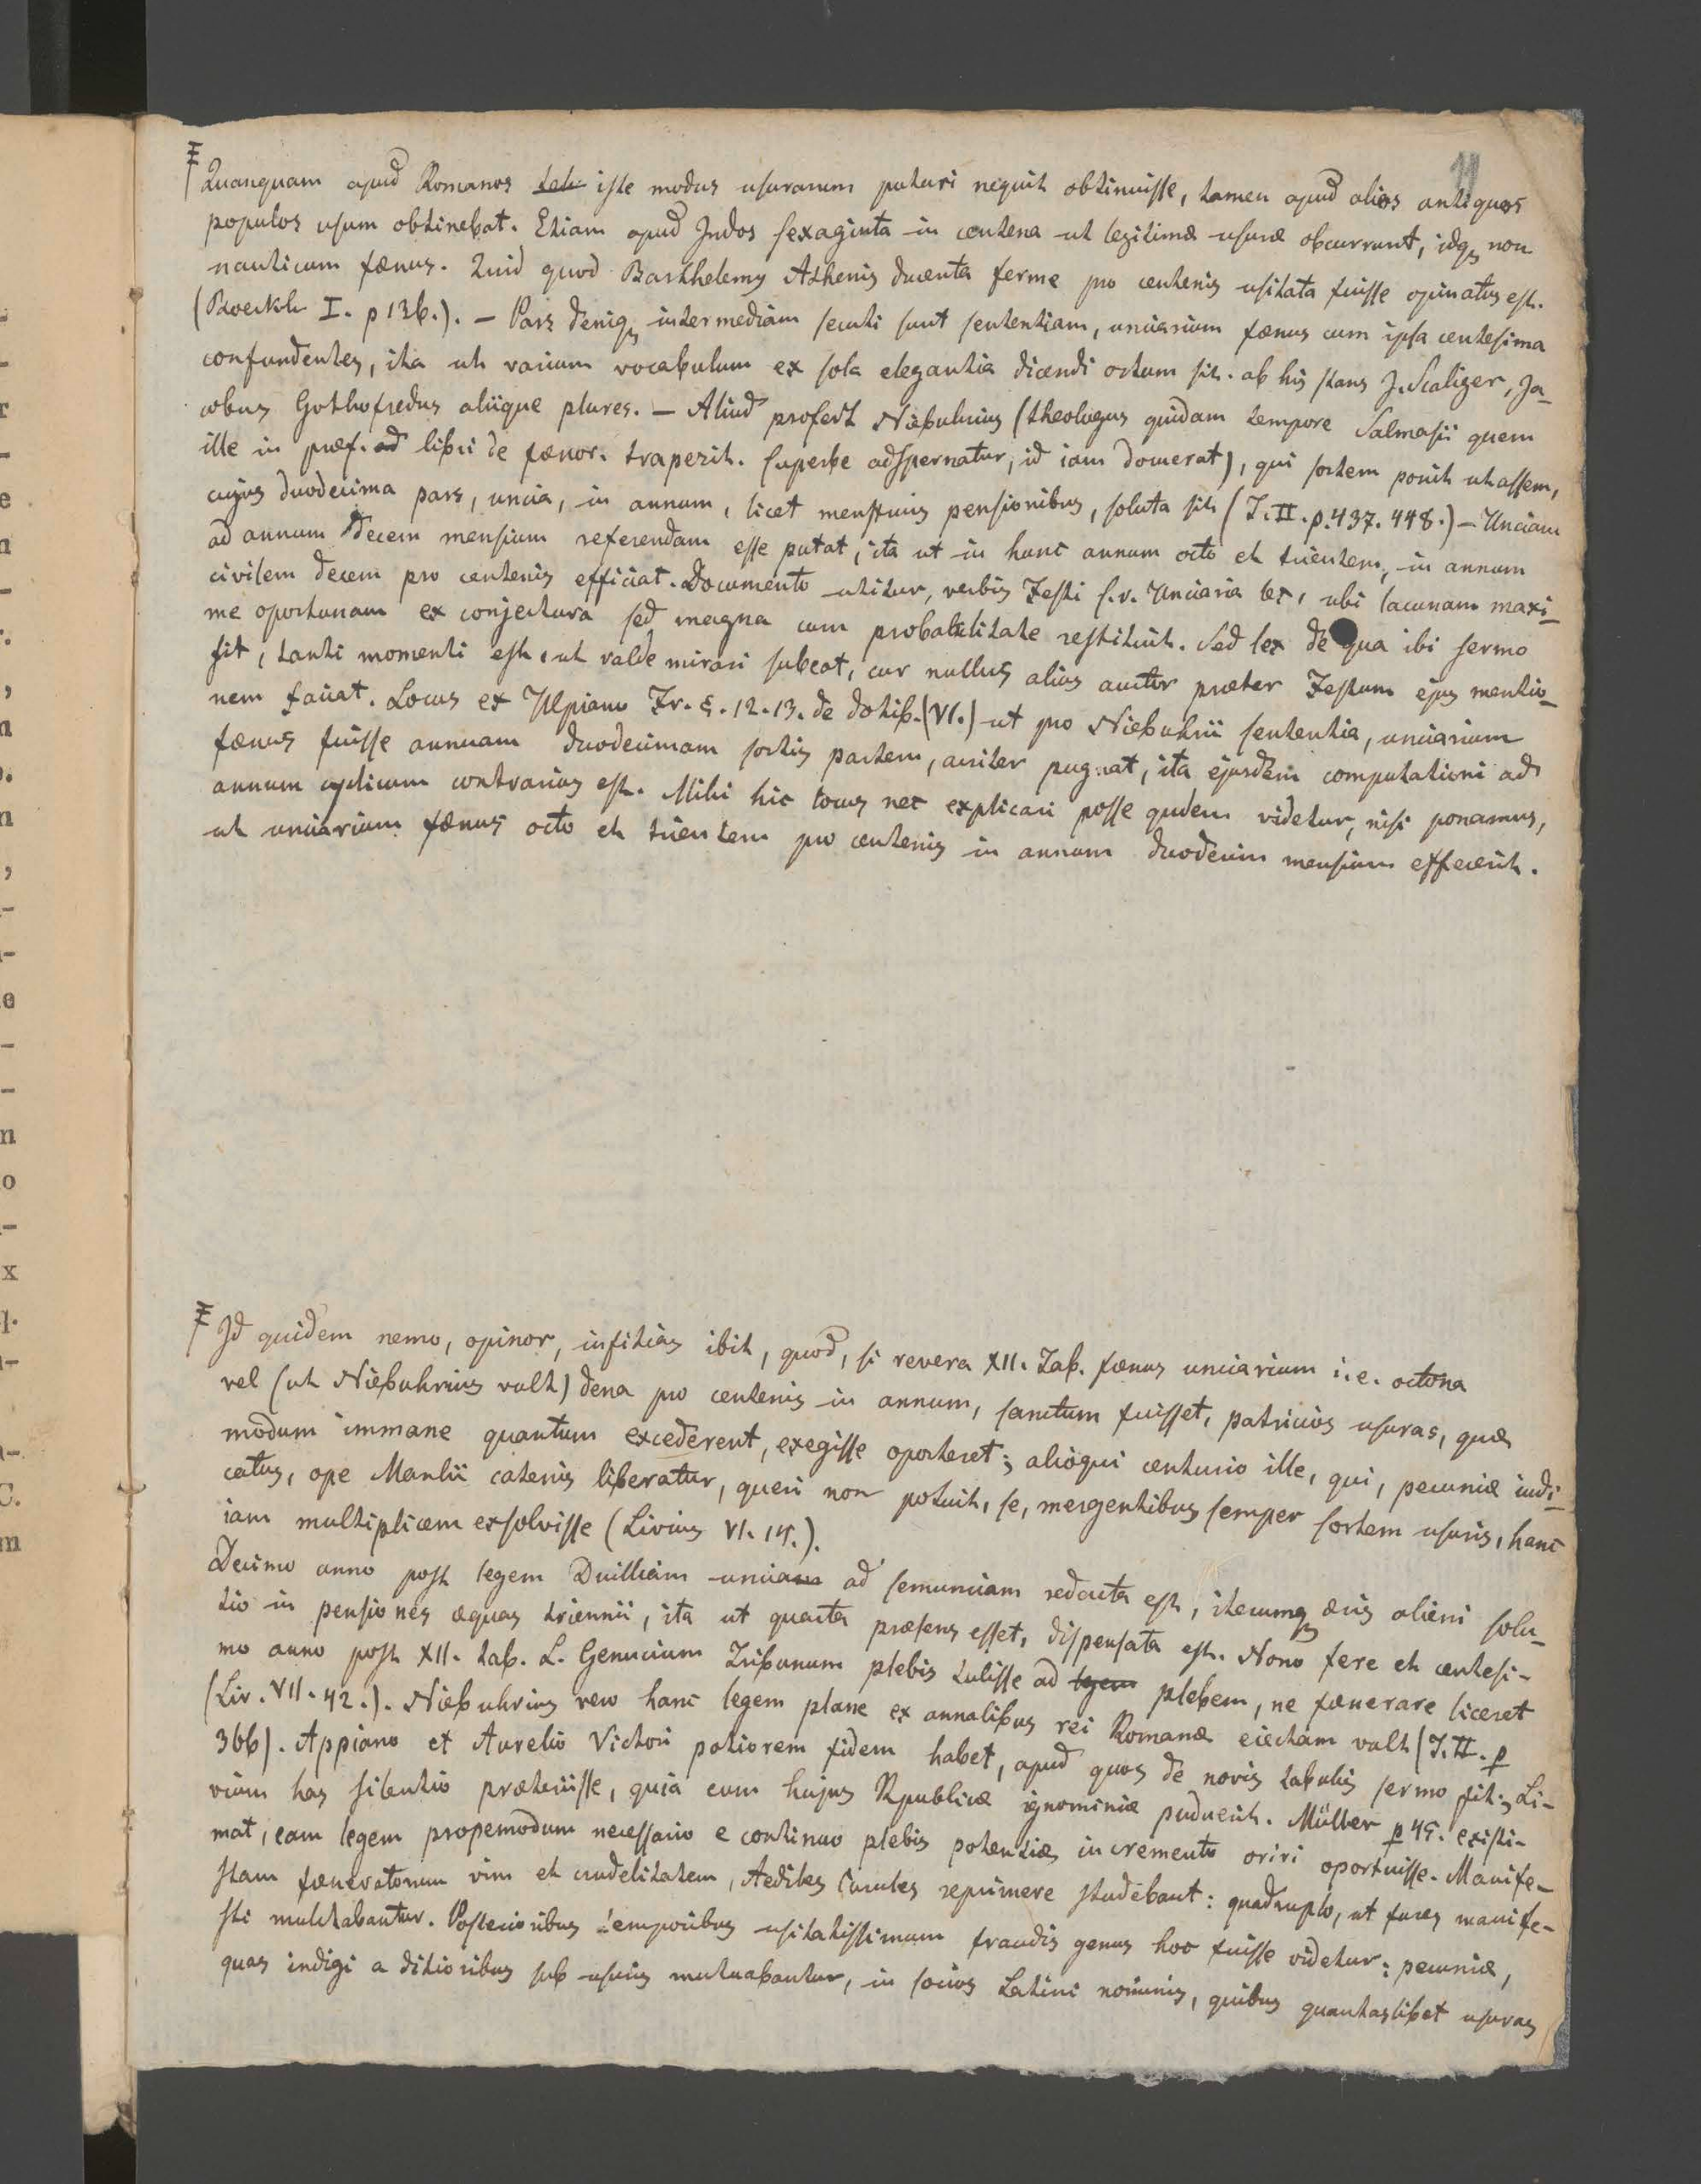 11
Quanquam apud Romanos iste modus usurarum putari nequit obtinuisse, tamen apud alios antiquos
populos usum obtinebat. Etiam apud Indos sexaginta in centena ut legitimæ usuræ obcurrunt, idq non
nauticum fænus. Quid quod Barthelemy Athenis ducenta ferme pro centenis usitata fuisse opinatus est.
(Boeckh I. p 136.). – Pars deniq intermediam secuti sunt sententiam, unciarium fænus cum ipsa centesima
confundentes, ita ut varium vocabulum ex sola elegantia dicendi ortum sit. ab his stans J. Scaliger, Ja-
cobus Gothofredus aliique plures. – Aliud profert Niebuhrius (theologus quidam tempore Salmasii quem
ille in præf. ad libri de fænor. trapezit. superbe adspernatur, id iam docuerat), qui sortem ponit ut assem,
cujus duodecima pars, uncia, in annum, licet menstruis pensionibus, soluta sit (T. II. p. 437. 448.) – Unciam
ad annum decem mensium referendam esse putat, ita ut in hunc annum octo et trientem, in annum
civilem decem pro centenis efficiat. Documento utitur, verbis Festi s.v. Unciaria lex, ubi lacunam maxi-
me oportunam ex conjectura sed magna cum probabilitate restituit. Sed lex de qua ibi sermo
fit, tanti momenti est, ut valde mirari subeat, cur nullus alius auctor præter Festum ejus mentio-
nem faciat. Locus ex Ulpiano Fr. 5. 12. 13. de dotib. (VI.) ut pro Niebuhrii sententia, unciarium
fænus fuisse annuam duodecimam sortis partem, acriter pugnat, ita ejusdem computationi ad
annum cyclicum contrarius est. Mihi hic locus nec explicari posse qudem videtur, nisi ponamus,
ut unciarium fænus octo et trientem pro centenis in annum duodecim mensium effecerit.
Id quidem nemo, opinor, infitias ibit, quod, si revera XII. Tab. fænus unciarium i.e. octona
vel (ut Niebuhrius vult) dena pro centenis in annum, sanctum fuisset, patricios usuras, quæ
modum immane quantum excederent, exegisse oporteret; alioqui centurio ille, qui, pecuniæ iudi-
catus, ope Manlii catenis liberatur, queri non potuit, se, mergentibus semper sortem usuris, hanc
iam multiplicem exsolvisse (Livius VI. 14.).
Decimo anno post legem Duilliam uncia ad semunciam redacta est, iterumq æris alieni solu-
tio in pensiones æquas triennii, ita ut quarta præsens esset, dispensata est. Nono fere et centesi-
mo anno post XII. tab. L. Genucium Tribunum plebis tulisse ad legem plebem, ne fænerare liceret
(Liv. VII. 42.). Niebuhrius vero hanc legem plane ex annalibus rei Romanæ eiectam vult (T. II. p
366). Appiano et Aurelio Victori potiorem fidem habet, apud quos de novis tabulis sermo fit; Li-
vium has silentio præteriisse, quia eum hujus Rpublicæ ignominiæ puduerit. Müller p 45. existi-
mat, eam legem propemodum necessario e continuo plebis potentiæ incremento oriri oportuisse. Manife-
stam fæneratorum vim et crudelitatem, Aediles Curules reprimere studebant: quadruplo, ut fures manife-
sti mulctabantur. Posterioribus temporibus usitatissimum fraudis genus hoc fuisse videtur: pecuniæ,
quas indigi a ditioribus sub usuris mutuabantur, in socios Latini nominis, quibus quantaslibet usuras